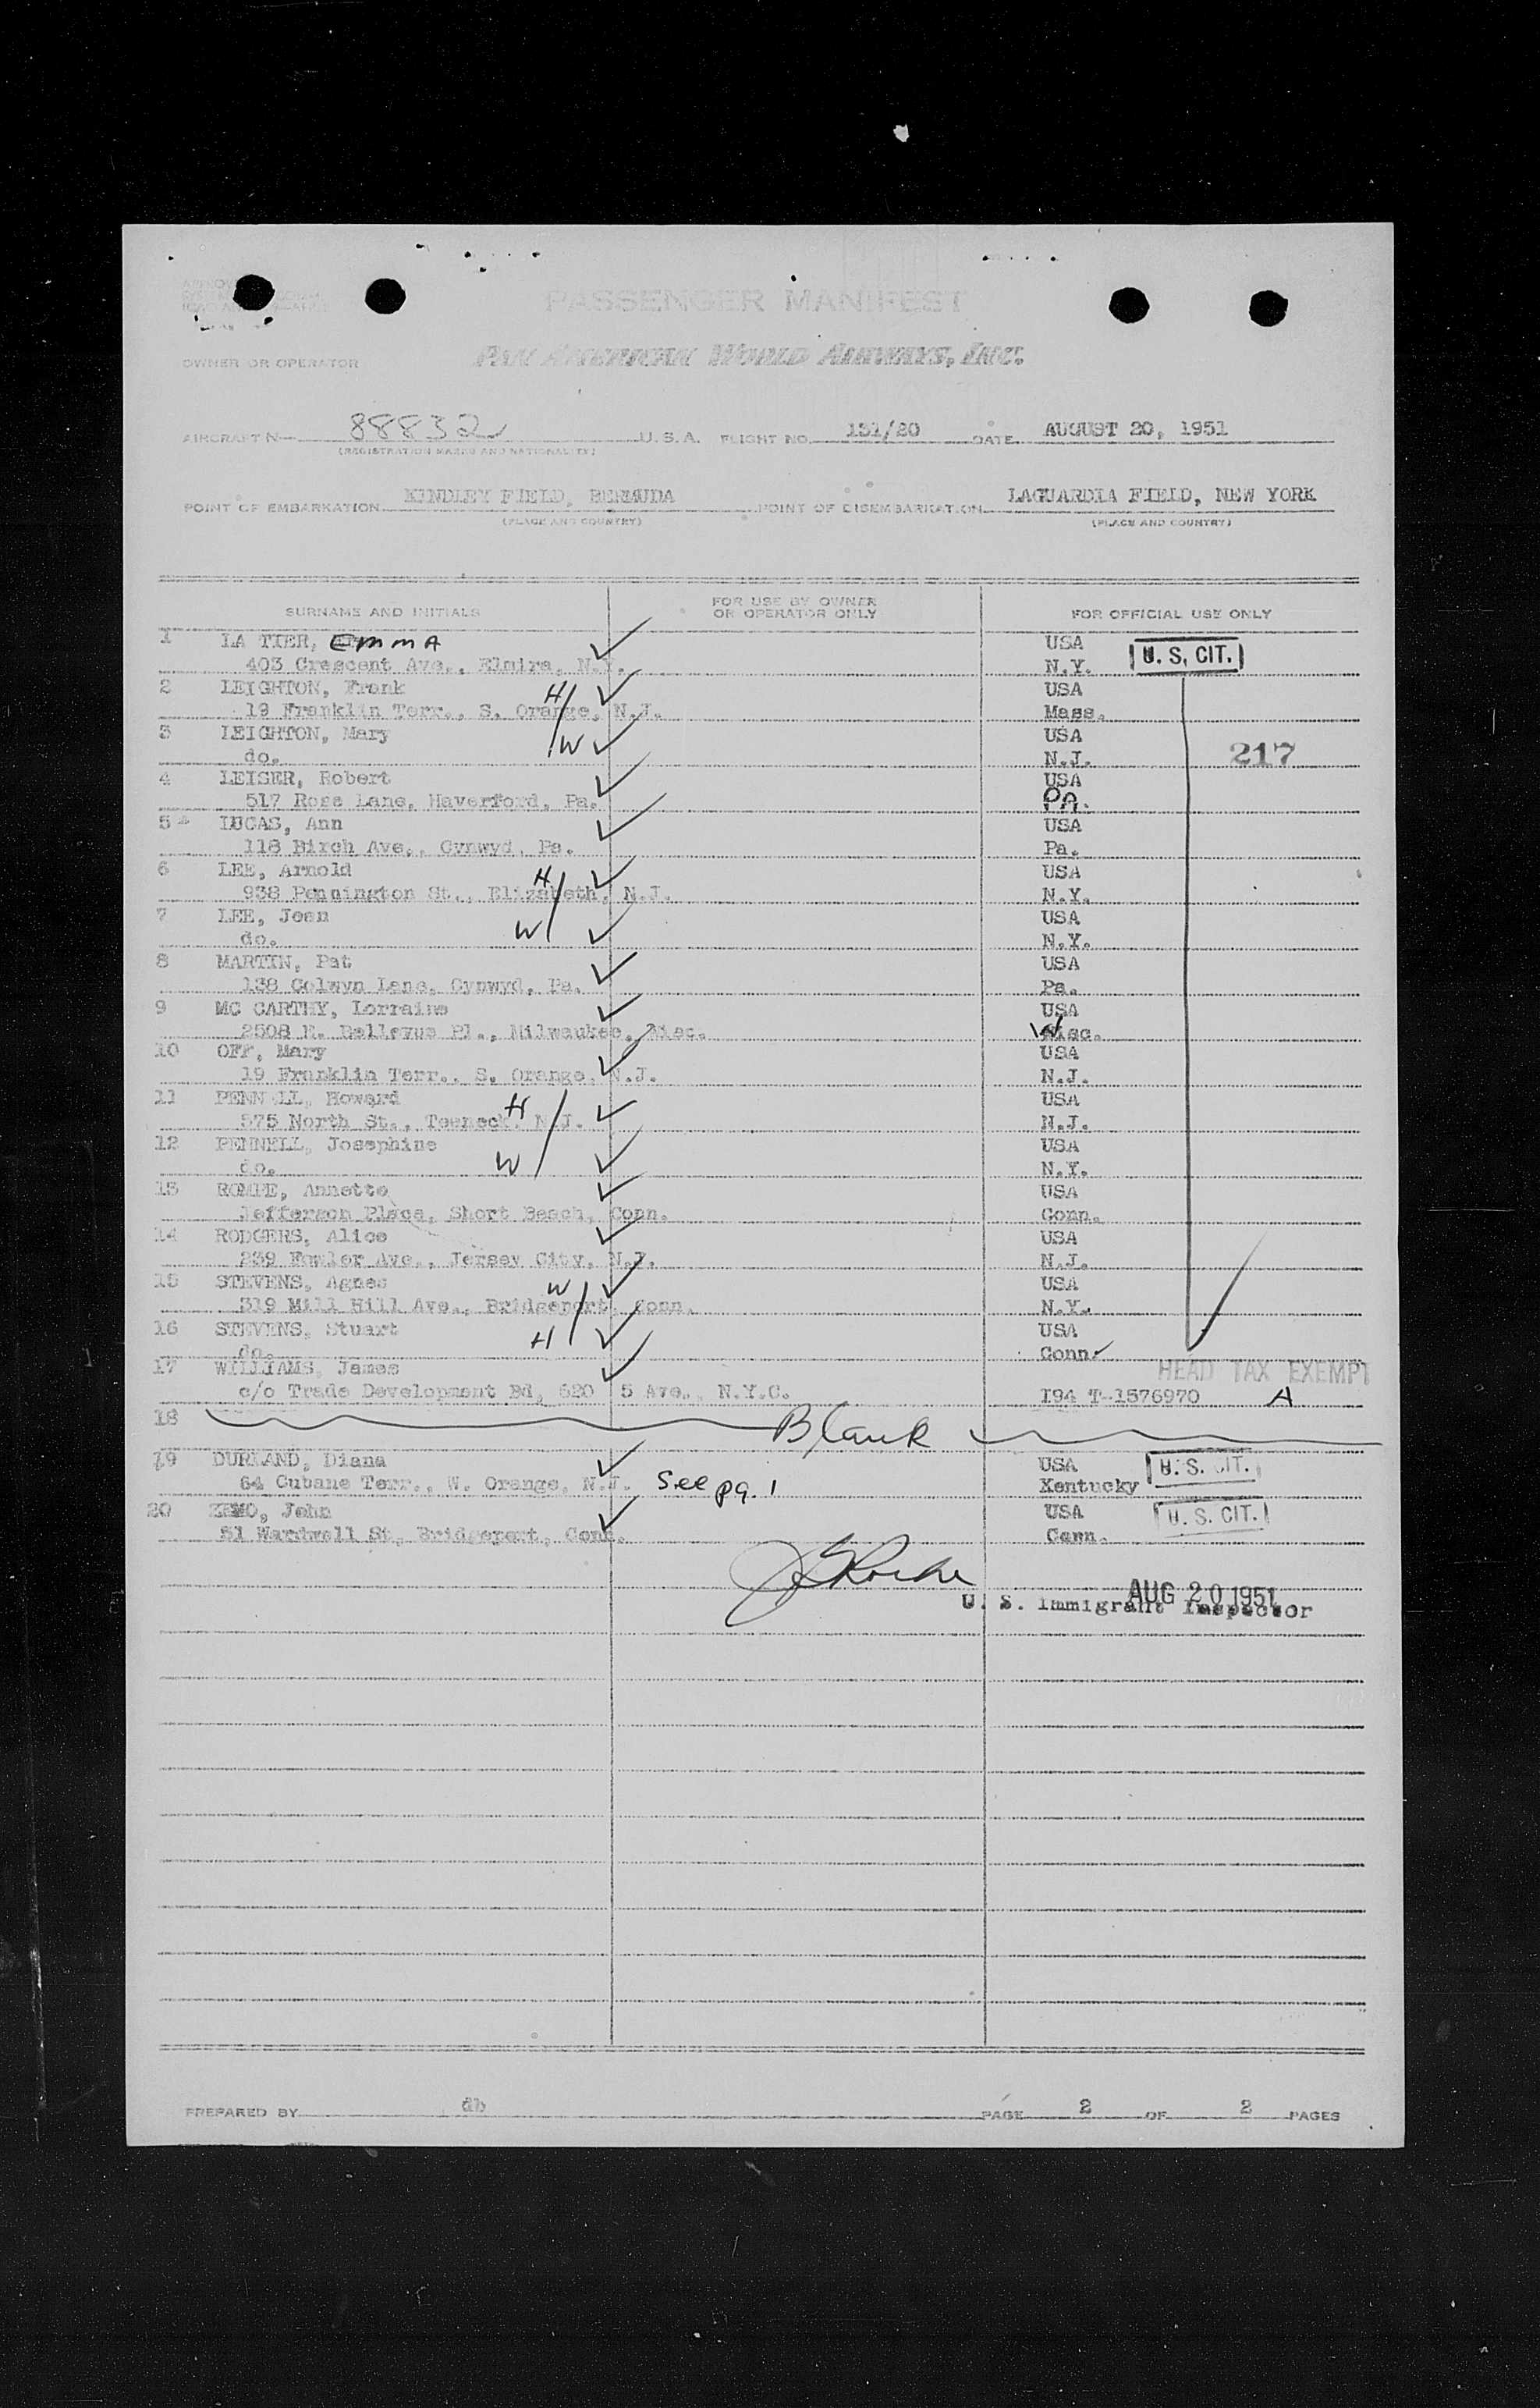 PASSENGER MANIFEST
OWNER OR OPERATOR PAN AMERICAN WORLD AIRWAYS, INC.
AIRCRAFT N— 88832 U. S. A. FLIGHT NO. 131/20 DATE AUGUST 20, 1951
(REGISTRATION MARKS AND NATIONALITY)
POINT OF EMBARKATION KINDLEY FIELD, BERMUDA POINT OF DISEMBARKATION LAGUARDIA FIELD, NEW YORK
(PLACE AND COUNTRY) (PLACE AND COUNTRY)
SURNAME AND INITIALS FOR USE BY OWNER OR OPERATOR ONLY FOR OFFICIAL USE ONLY
1 LA TIER, EMMA USA
403 Crescent Ave., Elmira, N.Y. N.Y. U. S. CIT.
2 LEIGHTON, Frank H USA
19 Franklin Terr., S. Orange, N.J. Mass.
3 LEIGHTON, Mary W USA
do. N.J. 217
4 LEISER, Robert USA
517 Rose Lane, Haverford, Pa. PA.
5 LUCAS, Ann USA
118 Birch Ave., Cynwyd, Pa. Pa.
6 LEE, Arnold H USA
938 Pennington St., Elizabeth, N.J. N.Y.
7 LEE, Jean W USA
do. N.Y.
8 MARTIN, Pat USA
138 Colwyn Lane, Cynwyd, Pa. Pa.
9 MC CARTHY, Lorraine USA
2508 E. Bellevue Pl., Milwaukee, Wisc. Wisc.
10 OFF, Mary USA
19 Franklin Terr., S. Orange, N.J. N.J.
11 PENNELL, Howard H USA
375 North St., Teaneck, N.J. N.J.
12 PENNELL, Josephine W USA
do. N.Y.
13 Annette USA
Jefferson Place, Short Beach, Conn. Conn.
14 RODGERS, Alice USA
239 Fowler Ave., Jersey City, N.J. N.J.
15 STEVENS, Agnes W USA
319 Mill Hill Ave., Bridgeport, Conn. N.Y.
16 STEVENS, Stuart H USA
do. Conn.
17 WILLIAMS, James HEAD TAX EXEMPT
c/o Trade Development Bd, 620 5 Ave., N.Y.C. I94 T-1576970 A
18 Blank
19 DURLAND, Diana USA U. S. CIT.
64 Cubane Terr., W. Orange, N.J. See pg. 1 Kentucky
20 ZEMO, John USA U. S. CIT.
51 Wardwell St, Bridgeport, Conn. Conn.
AUG 20 1951
U. S. Immigrant Inspector
PREPARED BY db PAGE 2 OF 2 PAGES